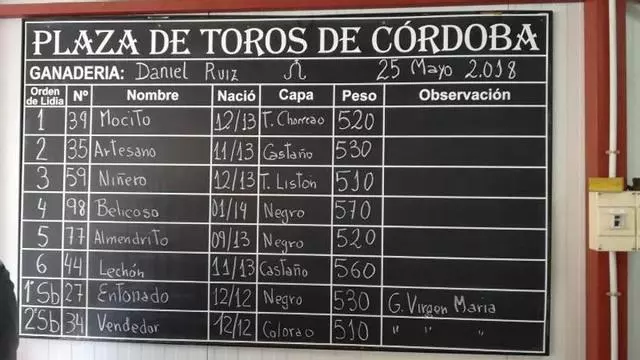 PLAZA DE TOROS DE CÓRDOBA
GANADERIA: Daniel Ruiz 25 Mayo 2.018
Orden de Lidia Nº Nombre Nació Capa Peso Observación
1 39 Mocito 12/13 T. Chorreao 520
2 35 Artesano 11/13 Castaño 530
3 59 Niñero 12/13 T. Listón 510
4 98 Belicoso 01/14 Negro 570
5 77 Almendrito 09/13 Negro 520
6 44 Lechón 11/13 Castaño 560
1ºSb 27 Entonado 12/12 Negro 530 G. Virgen Maria
2ºSb 34 Vendedor 12/12 Colorao 510 " " "